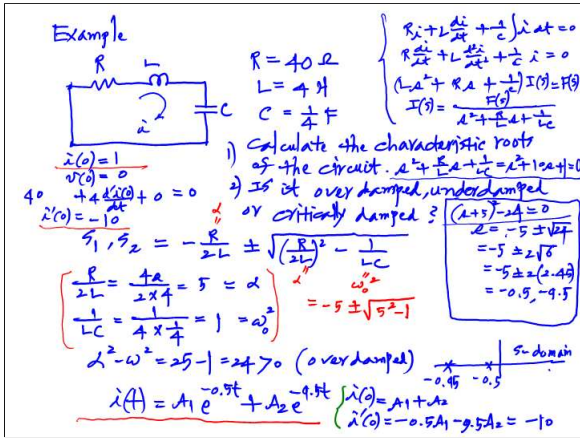 Example
R
L
C
i
i(0) = 1
v(0) = 0
40 + 4 di(0)/dt + 0 = 0
i'(0) = -10
R = 40 Ω
L = 4 H
C = 1/4 F
Ri + L di/dt + 1/C ∫ i dt = 0
R di/dt + L d²i/dt² + 1/C i = 0
(Ls² + Rs + 1/C) I(s) = F(s)
I(s) = F(s) / s² + R/L s + 1/LC
1) Calculate the characteristic roots
of the circuit. s² + R/L s + 1/LC = s² + 10s + 1 = 0
2) Is it overdamped, underdamped
or critically damped?
(s+5)² - 24 = 0
s = -5 ± √24
= -5 ± 2√6
= -5 ± 2(2.45)
= -0.5, -9.5
α
S1, S2 = -R/2L ± √(R/2L)² - 1/LC
α² ω0²
= -5 ± √5² - 1
R/2L = 40/2×4 = 5 = α
1/LC = 1/4×1/4 = 1 = ω0²
α² - ω² = 25 - 1 = 24 > 0 (overdamped)
s-domain
-0.95 -0.5
i(t) = A1 e^-0.5t + A2 e^-9.5t
i(0) = A1 + A2
i'(0) = -0.5A1 - 9.5A2 = -10